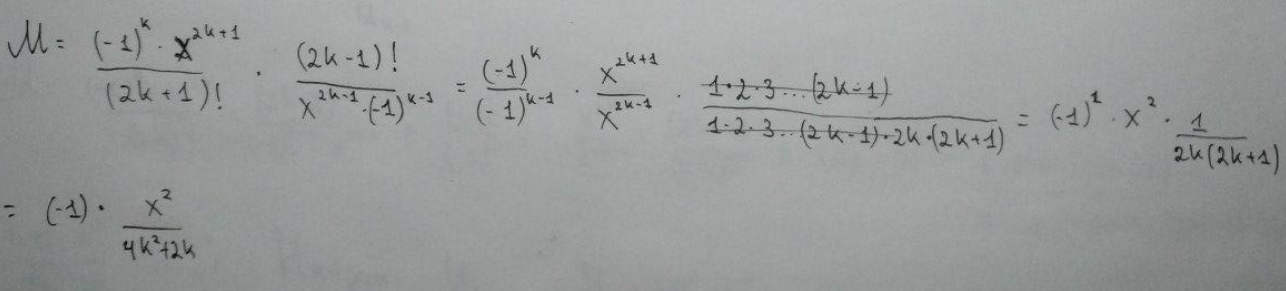 M = \frac{(-1)^k \cdot x^{2k+1}}{(2k+1)!} \cdot \frac{(2k-1)!}{x^{2k-1} \cdot (-1)^{k-1}} = \frac{(-1)^k}{(-1)^{k-1}} \cdot \frac{x^{2k+1}}{x^{2k-1}} \cdot \frac{1 \cdot 2 \cdot 3 ... (2k-1)}{1 \cdot 2 \cdot 3 ... (2k-1) \cdot 2k \cdot (2k+1)} = (-1)^1 \cdot x^2 \cdot \frac{1}{2k(2k+1)}
= (-1) \cdot \frac{x^2}{4k^2+2k}